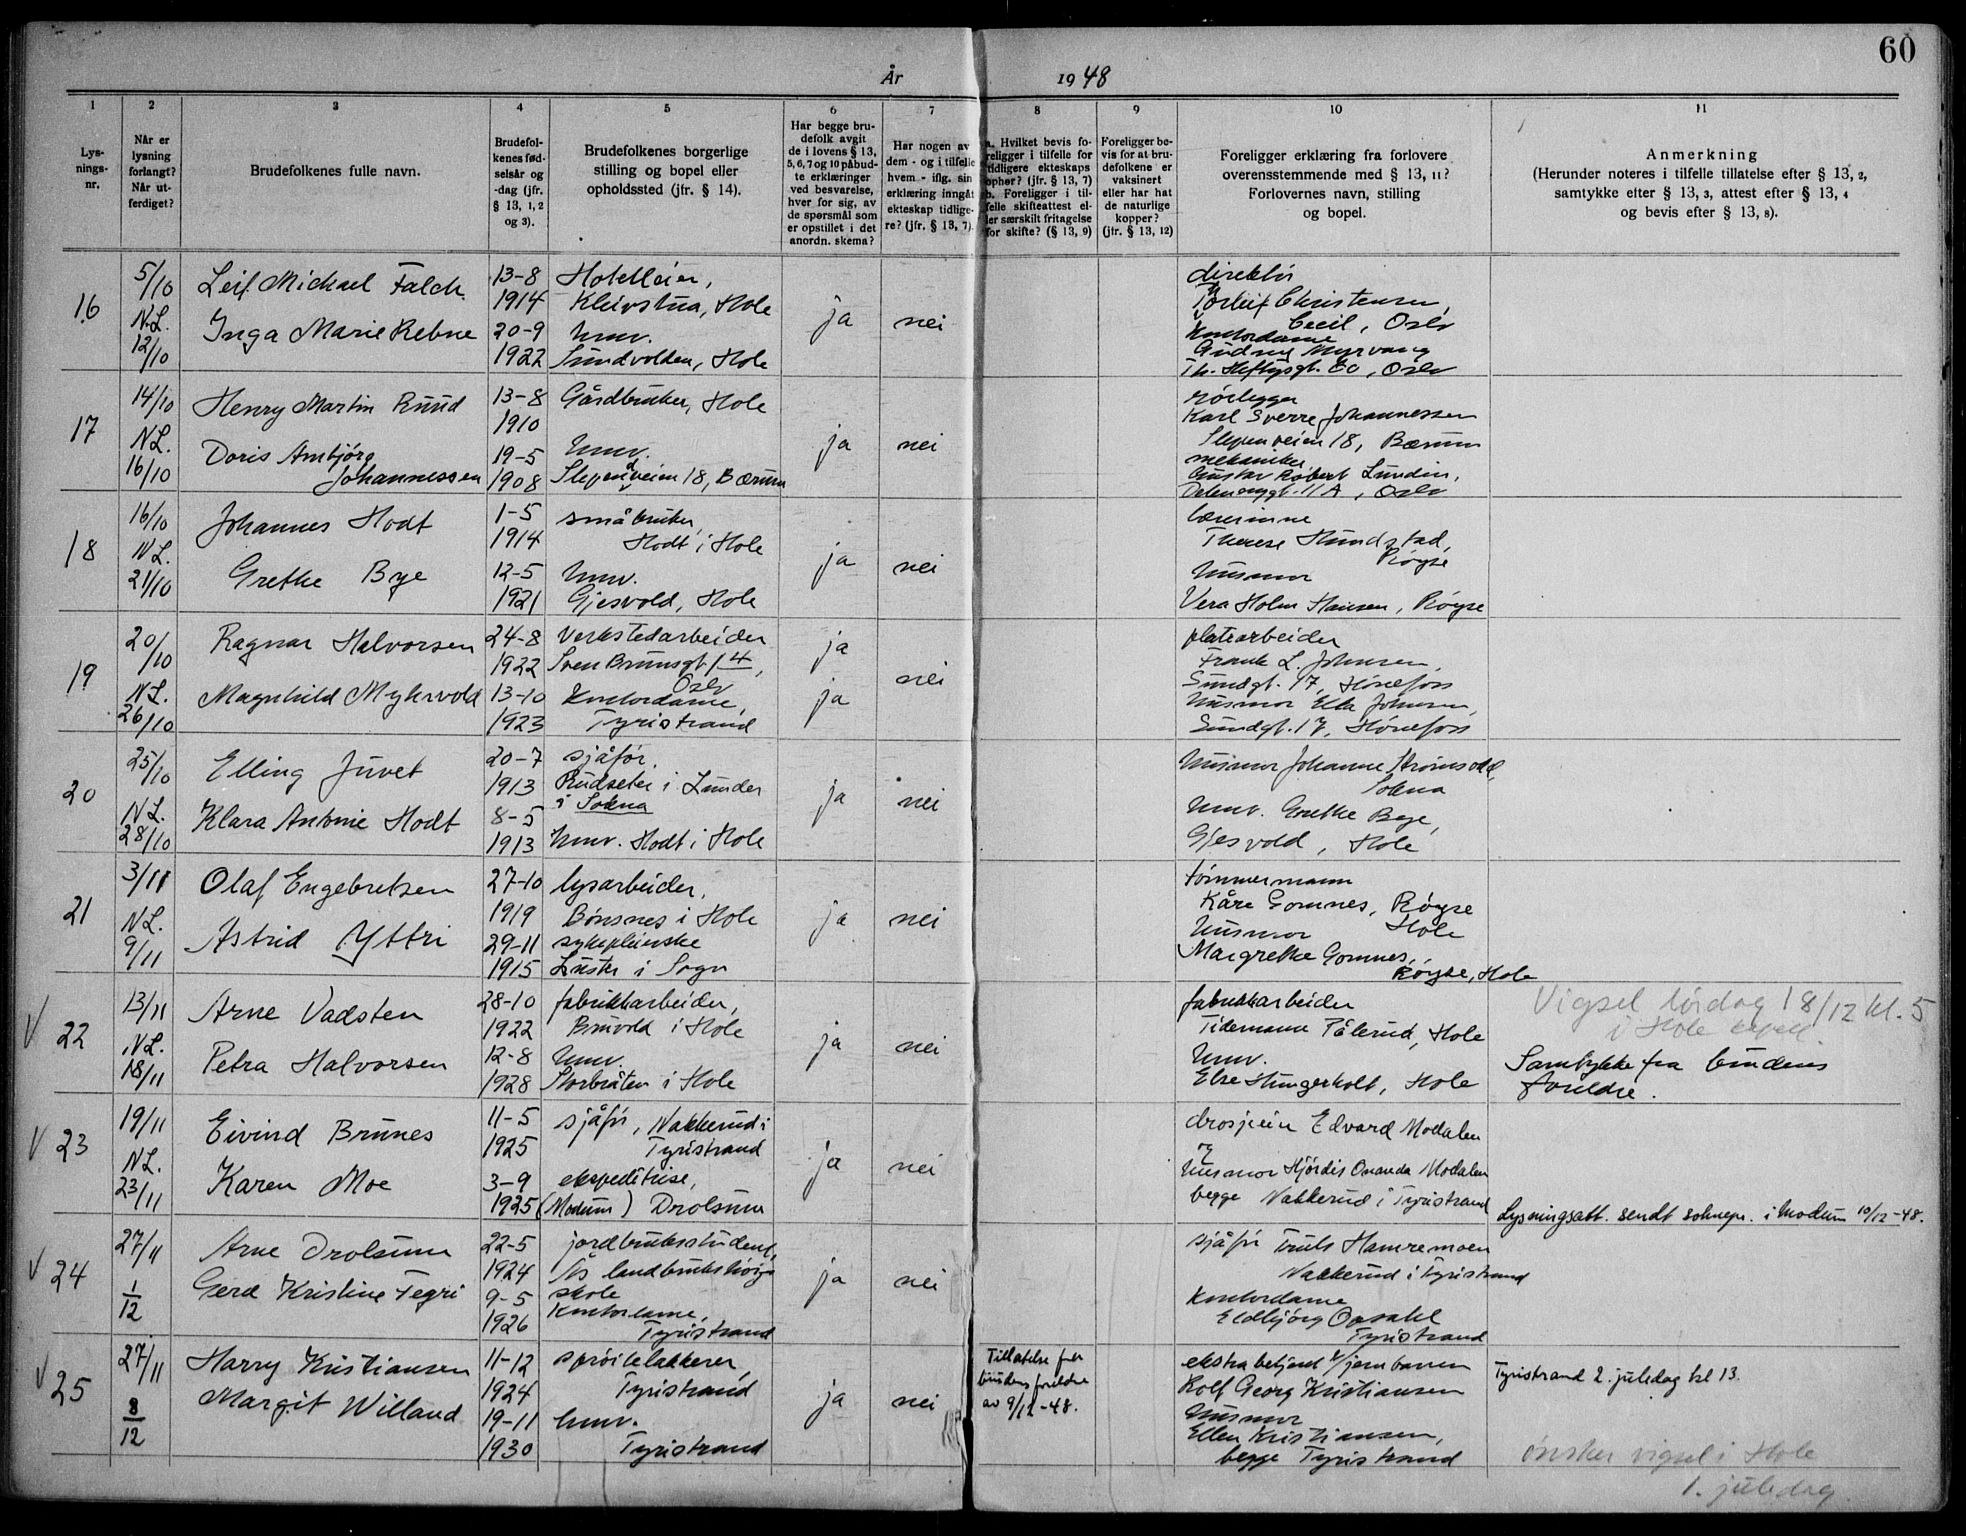 60
År 1948
1 2 3 4 5 6 7 8 9 10 11
Lys-
nings-
nr.
Når er
lysning
forlangt?
Når ut-
ferdiget?
Brudefolkenes fulle navn.
Brudefol-
kenes fød-
selsår og
-dag (jfr.
§ 13, 1, 2
og 3).
Brudefolkenes borgerlige
stilling og bopel eller
opholdssted (jfr. § 14).
Har begge bru-
defolk avgit
de i lovens § 13,
5, 6, 7 og 10 påbud-
te erklæringer
ved besvarelse,
hver for sig, av
de spørsmål som
er opstillet i det
anordn. skema?
Har nogen av
dem - og i tilfelle
hvem - iflg. sin
erklæring inngåt
ekteskap tidlige-
re? (jfr. § 13, 7).
a. Hvilket bevis fo-
religger i tilfelle for
tidligere ekteskaps
ophør? (jfr. § 13, 7)
b. Foreligger i til-
felle skifteattest el-
ler særskilt fritagelse
for skifte? (§ 13, 9)
Foreligger be-
vis for at bru-
defolkene er
vaksinert
eller har hat
de naturlige
kopper?
(jfr. § 13, 12)
Foreligger erklæring fra forlovere
overensstemmende med § 13, 11?
Forlovernes navn, stilling
og bopel.
Anmerkning
(Herunder noteres i tilfelle tillatelse efter § 13, 2,
samtykke efter § 13, 3, attest efter § 13, 4
og bevis efter § 13, 8).
16
5/10
N.L.
12/10
Leif Michael Falch
Inga Marie Rebne
13-8
1914
20-9
1922
Hotelleier,
Kleivstua, Hole
hmv.
Sundvolden, Hole
ja
nei
direktør
Thorleif Christensen,
Cecil, Oslo
kontordame
Gudny Myrvang
Th. Heftysgt. 60, Oslo
17
14/10
N.L.
16/10
Henry Martin Ruud
Doris Ambjörg
Johannessen
13-8
1910
19-5
1908
Gårdbruker, Hole
hmv.
Slependveien 18, Bærum
ja
nei
rörlegger
Karl Sverre Johannessen
Slepenveien 18, Bærum
mekaniker
Gustav Robert Lundin,
11 A, Oslo
18
16/10
N.L.
21/10
Johannes Hodt
Grethe Bye
1-5
1914
12-5
1921
småbruker,
Hodt i Hole
hmv.
Gjesvold, Hole
ja
nei
lærerinne
Therese Hundstad,
Røyse
husmor
Vera Holm Hansen, Røyse
19
20/10
N.L.
26/10
Ragnar Halvorsen
Magnhild Myhrvold
24-8
1922
13-10
1923
Verkstedarbeider
Sven Brunsgt. 14,
Oslo
kontordame,
Tyristrand
ja
ja
nei
platearbeider
Frank L. Johnsen,
Sundgt. 17, Hönefoss
husmor Ella Johnsen,
Sundgt. 17, Hönefoss
20
25/10
N.L.
28/10
Elling Juvet
Klara Antonie Hodt
20-7
1913
8-5
1913
sjåfør,
Rudseter i Lunder
i Sokna
hmv. Hodt i Hole
ja
nei
husmor Johanne Strömsodd,
Sokna
hmv. Grethe Bye,
Gjesvold, Hole
21
3/11
N.L.
9/11
Olaf Engebretsen
Astrid Yttri
27-10
1919
29-11
1915
lysarbeider,
Bönsnes i Hole
sykepleierske
Luster i Sogn
ja
nei
tömmermann
Kåre Gomnes, Röyse
Hole
husmor
Margrethe Gomnes,
Röyse, Hole
V 22
13/11
N.L.
18/11
Arne Vadsten
Petra Halvorsen
28-10
1922
12-8
1928
fabrikkarbeider,
Bruvold i Hole
hmv.
Storbråten i Hole
ja
nei
fabrikkarbeider
Tidemann Pålerud, Hole
hmv.
Else Hungerholt, Hole
Vigsel lördag 18/12 kl. 5
i Hole kapell
Samtykke fra brudens
foreldre.
V 23
19/11
N.L.
23/11
Eivind Brunes
Karen Moe
11-5
1925
3-9
1925
sjåfør, Nakkerud i
Tyristrand
ekspeditrise,
(Modum) Drolsum
ja
nei
drosjeeier Edvard Modalen
og
husmor Hjördis Ovanda Modalen
begge Nakkerud i Tyristrand
Lysningsatt. sendt soknepr. i Modum 10/12-48.
V 24
27/11
1/12
Arne Drolsum
Gerd Kristine Tegri
22-5
1924
9-5
1926
jordbruksstudent,
Ås landbrukshøig-
skole
kontordame,
Tyristrand
ja
nei
sjåfør Truls Hamremoen
Nakkerud i Tyristrand
kontordame
Eldbjörg Opsahl
Tyristrand
V 25
27/11
8/12
Harry Kristiansen
Margit Willand
11-12
1924
19-11
1930
sprøitelakkerer,
Tyristrand
hmv.
Tyristrand
ja
nei
Tillatelse fra
brudens foreldre
av 9/12-48.
ekstrabetjent v/jernbanen
Rolf Georg Kristiansen
husmor
Ellen Kristiansen,
begge Tyristrand
Tyristrand 2. juledag kl 13.
Ønsker vigsel i Hole
1. juledag.